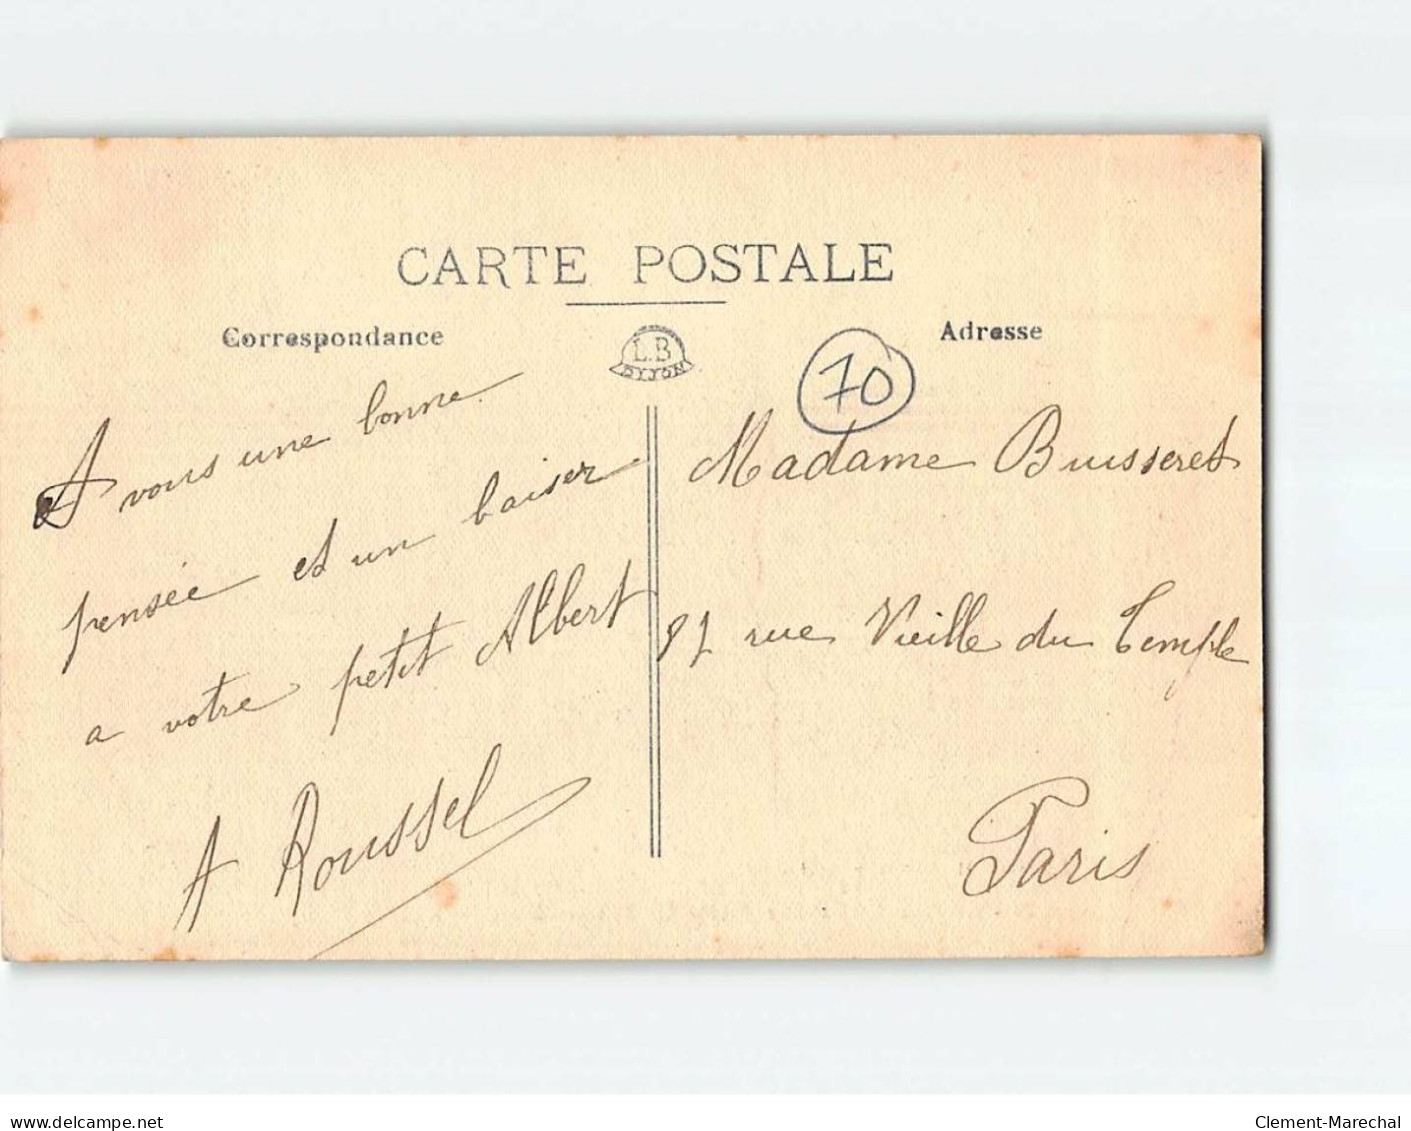 CARTE POSTALE
Correspondance
L.B
DIJON
Adresse
70
A vous une bonne
pensée et un baiser
a votre petit Albert
A Roussel
Madame Buisseret
rue Vieille du Temple
Paris
delcampe.net
Clement-Marechal